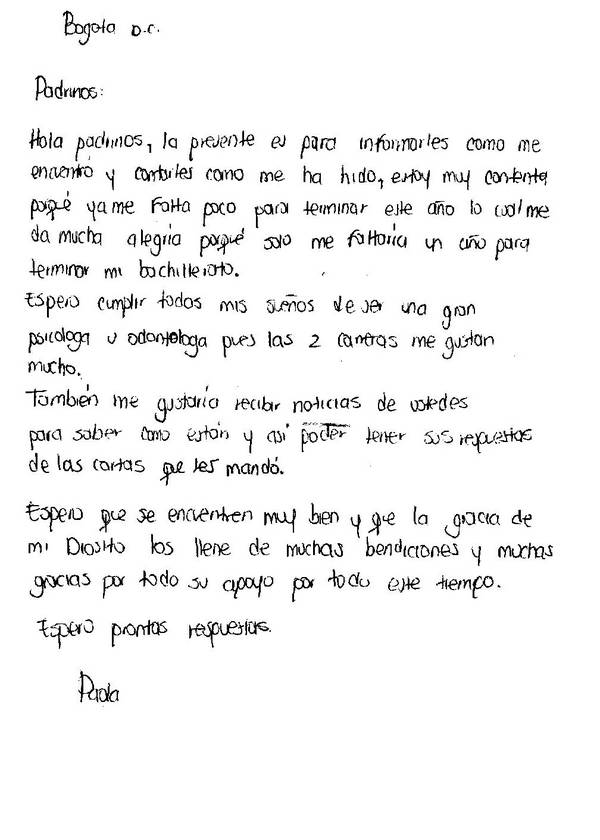 Bogota D.C.
Padrinos:
Hola padrinos, la presente es para informarles como me
encuentró y contarles como me ha hido, estoy muy contenta
porqué ya me falta poco para terminar este año lo cual me
da mucha alegría porqué solo me faltaría un año para
terminar mi bachillerato.
Espero cumplir todos mis sueños de ser una gran
psicologa u odontologa pues las 2 carreras me gustan
mucho.
También me gustaría recibir noticias de ustedes
para saber como están y así poder tener sus respuestas
de las cartas que les mandó.
Espero que se encuentren muy bien y que la gracia de
mi Diosito los llene de muchas bendiciones y muchas
gracias por todo su apoyo por todo este tiempo.
Espero prontas respuestas.
Paola